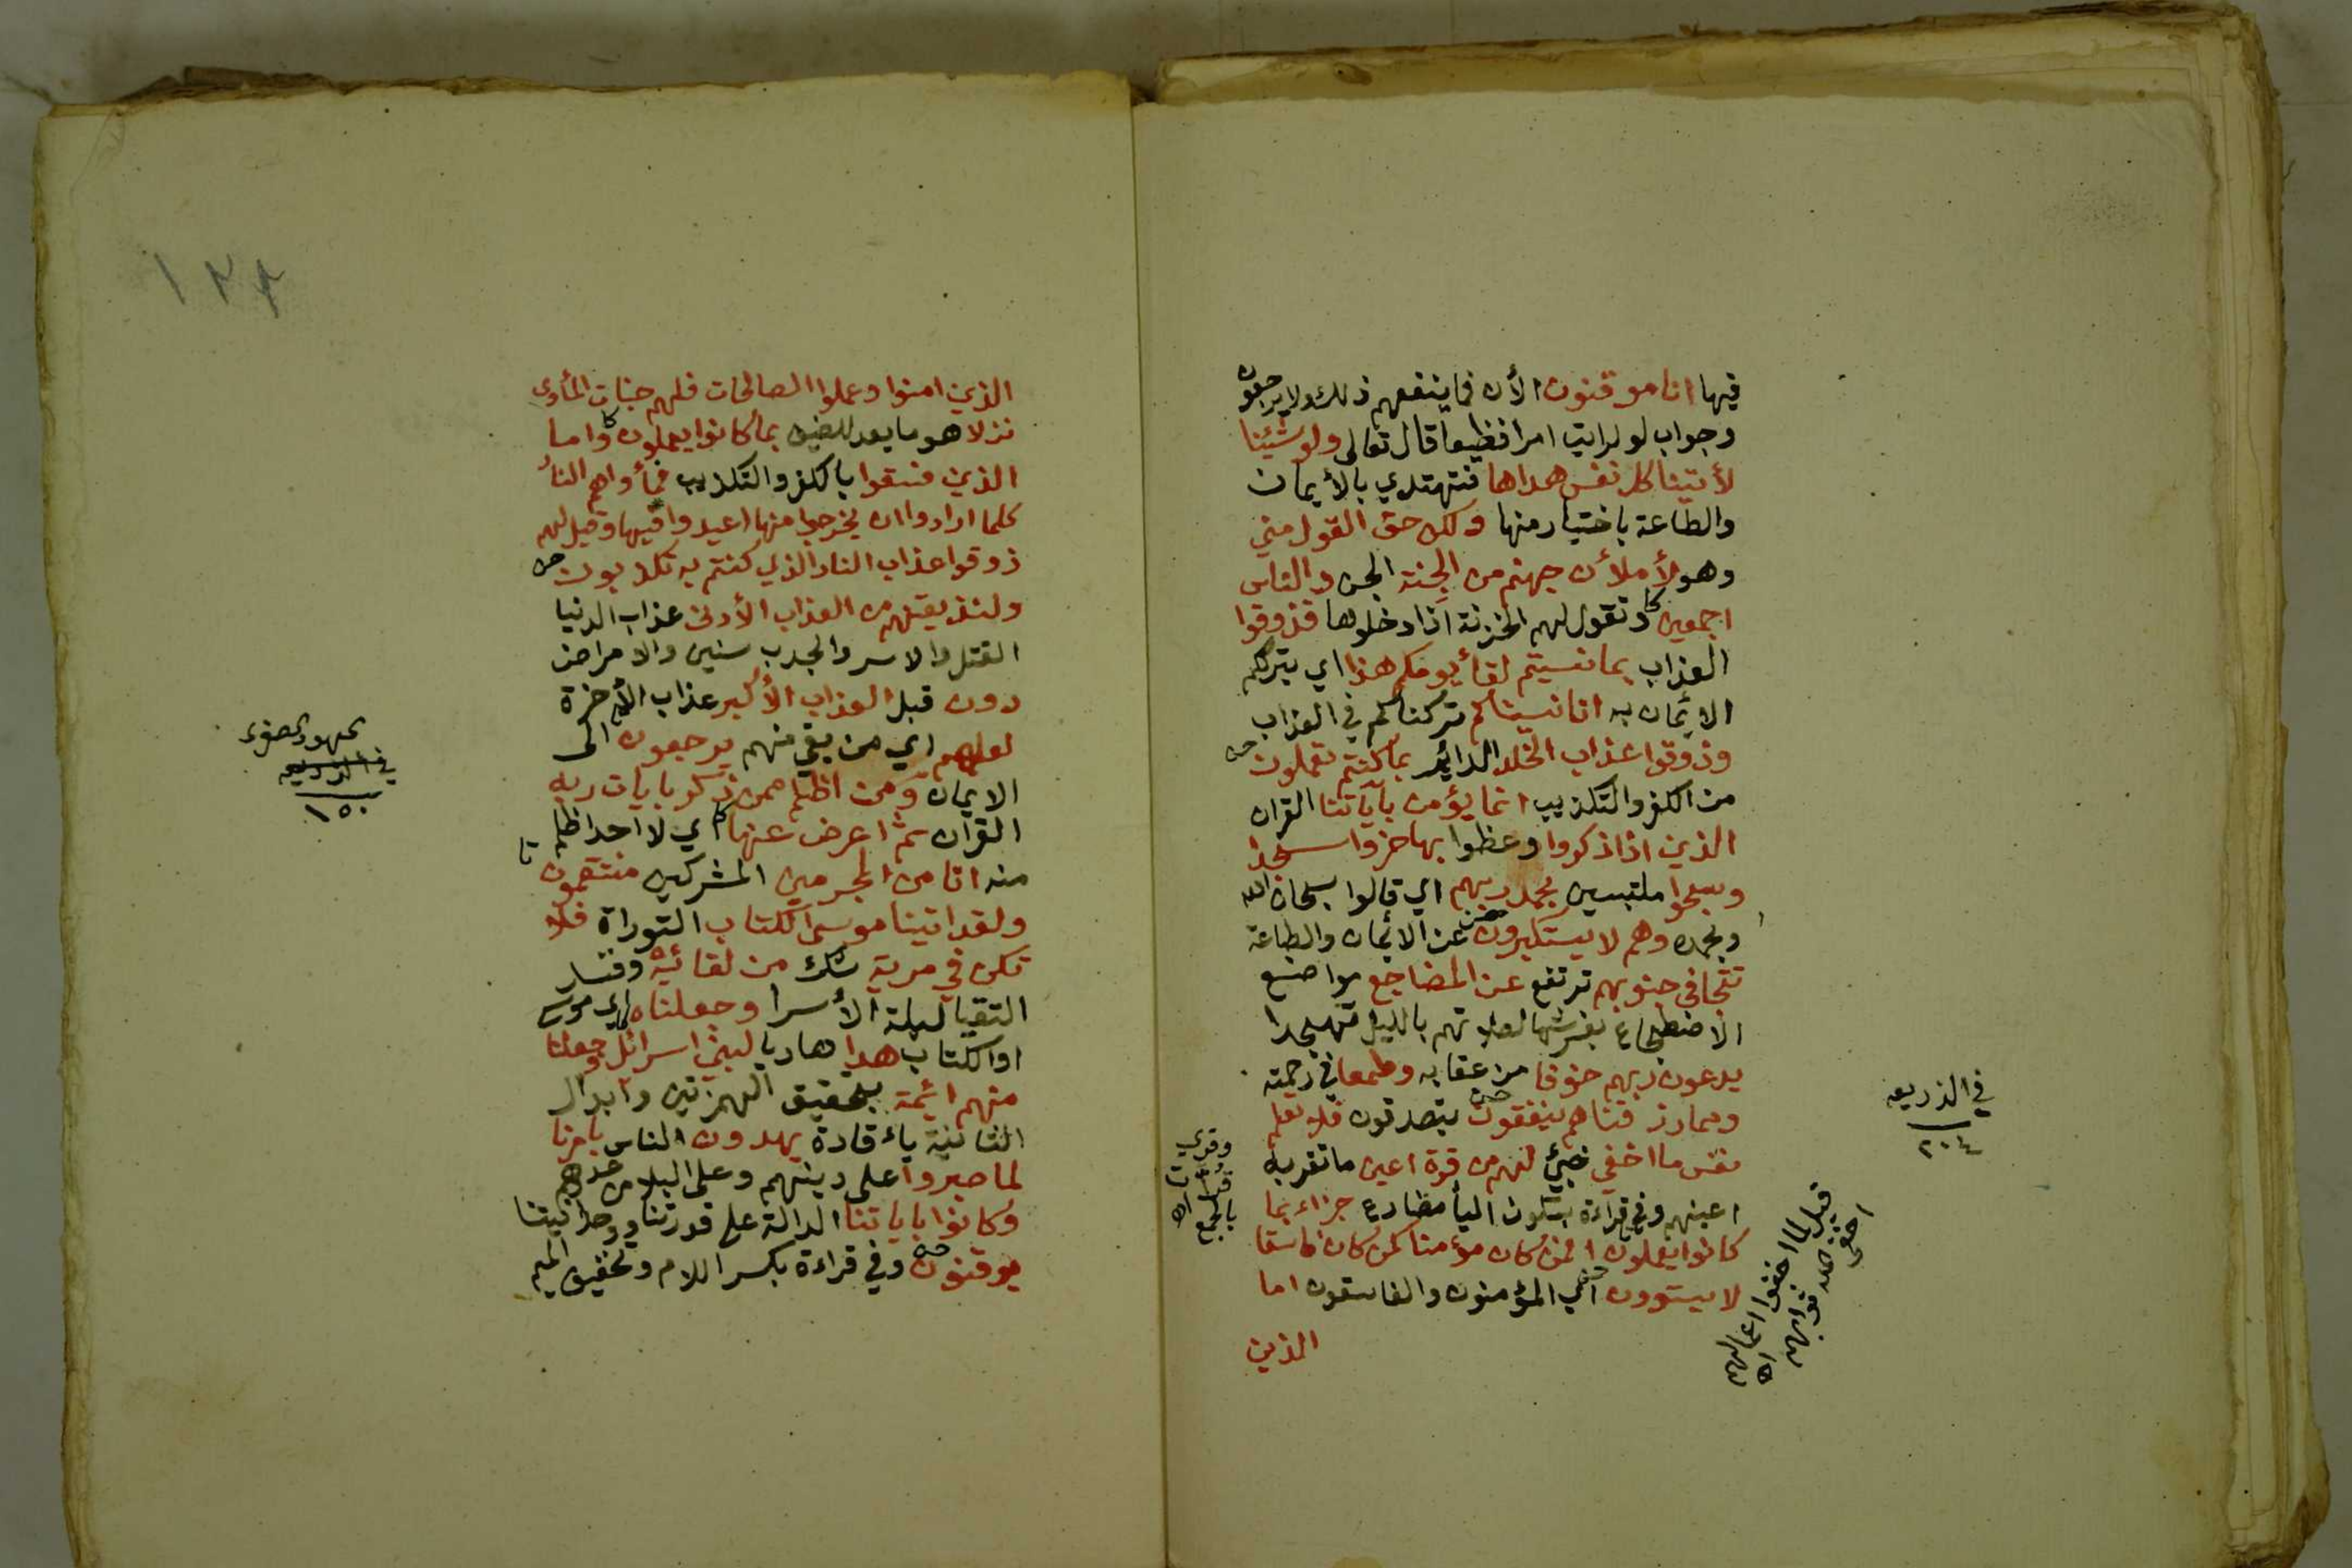 فيها انا موقنون الأن فما ينفعهم ذلك ولا يرجعون
وجواب لو لرايت امرا فظيعا قال تعالى ولو شئنا
لأتينا كل نفس هداها فتهتدي بالأيمان
والطاعة باختيار منها ولكن حق القول مني
وهو لأملأن جهنم من الجنة الجن والناس
اجمعين وتقول لهم الخزنة اذا دخلوها فذوقوا
العذاب بما نسيتم لقأ يومكم هذا اي بترككم
الايمان به انا نسيناكم تركناكم في العذاب
وذوقوا عذاب الخلد الدائم بما كنتم تعملون
من الكفر والتكذيب انما يؤمن بآياتنا القران
الذين اذا ذكروا وعظوا بها خروا سجدا
وسبحوا ملتبسين بحمد ربهم اي قالوا سبحان الله
وبحمده وهم لا يستكبرون عن الايمان والطاعة
تتجافى جنوبهم ترتفع عن المضاجع مواضع
الاضطجاع بفرشها لصلاتهم بالليل تهجدا
يدعون ربهم خوفا من عقابه وطمعا في رحمته
ومما رزقناهم ينفقون يتصدقون فلا تعلم
نفس ما اخفي خبئ لهم من قرة اعين ما تقر به
اعينهم وفي قراءة بسكون اليأ مضارع جزاء بما
كانوا يعملون افمن كان مؤمنا كمن كان فاسقا
لا يستوون اي المؤمنون والفاسقون اما
الذين
في الذريعه
٢٠٤
وقرئ
قرات
بالجمع اه
قيل لما اخفوا اعمالهم
اخفى الله ثوابهم اه
١٣٢
الذين امنوا وعملوا الصالحات فلهم جنات المأوى
نزلا هو ما يعد للضيف بما كانوا يعملون واما
الذين فسقوا بالكفر والتكذيب فمأواهم النار
كلما ارادوا ان يخرجوا منها اعيدوا فيها وقيل لهم
ذوقوا عذاب النار الذي كنتم به تكذبون
ولنذيقنهم من العذاب الأدنى عذاب الدنيا
القتل والاسر والجدب سنين والامراض
دون قبل العذاب الأكبر عذاب الأخرة
لعلهم اي من بقي منهم يرجعون الى
الايمان ومن اظلم ممن ذكر بايات ربه
القران ثم اعرض عنها اي لا احد اظلم
منه انا من المجرمين المشركين منتقمون
ولقد اتينا موسى الكتاب التوراة فلا
تكن في مرية شك من لقائه وقد
التقيا ليلة الأسرا وجعلناه اي موسى
او الكتاب هدا هاديا لبني اسرائل وجعلنا
منهم ائمة بتحقيق الهمزتين وابدال
الثانية ياء قادة يهدون الناس بامرنا
لما صبروا على دينهم وعلى البلا من عدوهم
وكانوا باياتنا الدالة على قدرتنا ووحدانيتنا
يوقنون وفي قراءة بكسر اللام وتخفيف الميم
في الذريعه
١٥٠